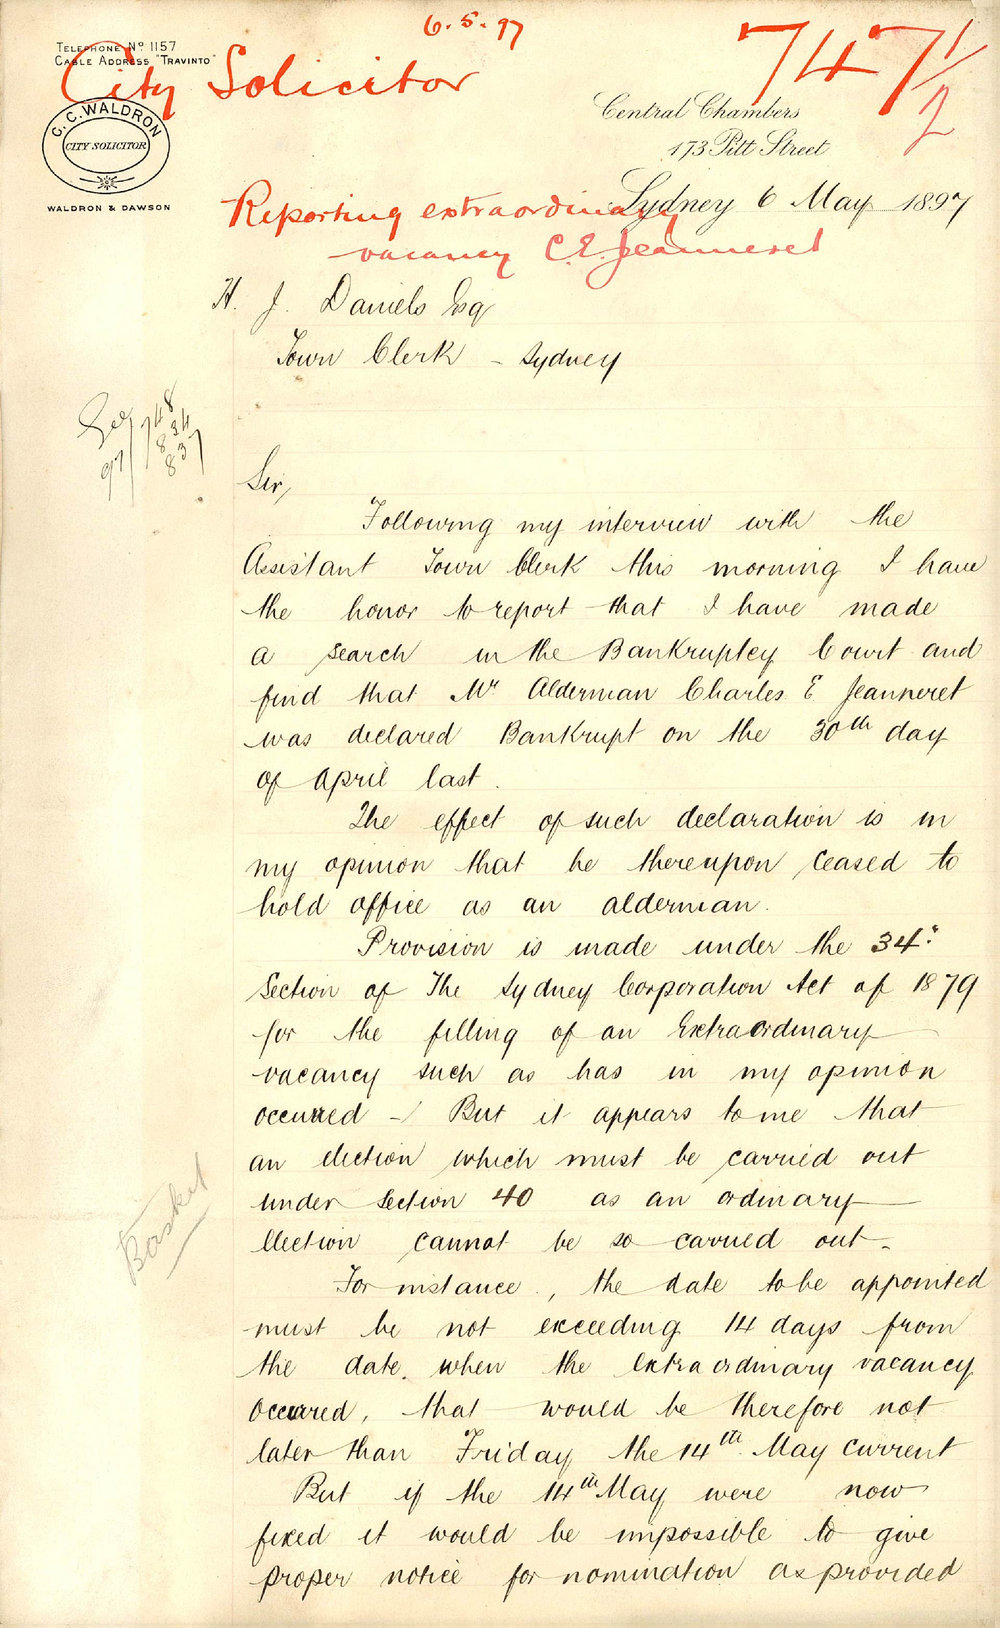 6.5.97
747 1/2
TELEPHONE No 1157
CABLE ADDRESS "TRAVINTO"
City Solicitor
C. C. WALDRON
CITY SOLICITOR
WALDRON & DAWSON
Central Chambers
173 Pitt Street
Sydney 6 May 1897
Reporting extraordinary
vacancy C. E. Jeanneret
H. J. Daniels Esq
Town Clerk - Sydney
See
97/748
834
837
Sir,
Following my interview with the
Assistant Town Clerk this morning I have
the honor to report that I have made
a search in the Bankruptcy Court and
find that Mr Alderman Charles E Jeanneret
was declared Bankrupt on the 30th day
of April last.
The effect of such declaration is in
my opinion that he thereupon ceased to
hold office as an alderman.
Provision is made under the 34:
Section of The Sydney Corporation Act of 1879
for the filling of an Extraordinary
vacancy such as has in my opinion
occurred - But it appears to me that
an election which must be carried out
under Section 40 as an ordinary
Election cannot be so carried out.
For instance, the date to be appointed
must be not exceeding 14 days from
the date when the extraordinary vacancy
occurred, that would be therefore not
later than Friday the 14th May current
But if the 14th May were now
fixed it would be impossible to give
proper notice for nomination as provided
Basket